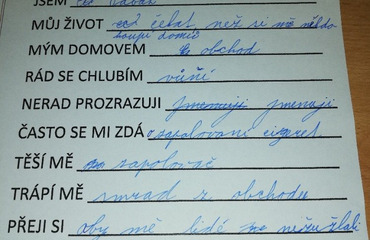 JSEM
MŮJ ŽIVOT čekat, než si mě někdo
koupí domů
MÝM DOMOVEM obchod
RÁD SE CHLUBÍM vůní
NERAD PROZRAZUJI jmenuji
ČASTO SE MI ZDÁ o zapalovaní cigaret
TĚŠÍ MĚ zapalovač
TRÁPÍ MĚ smrad z obchodu
PŘEJI SI aby mě lidé